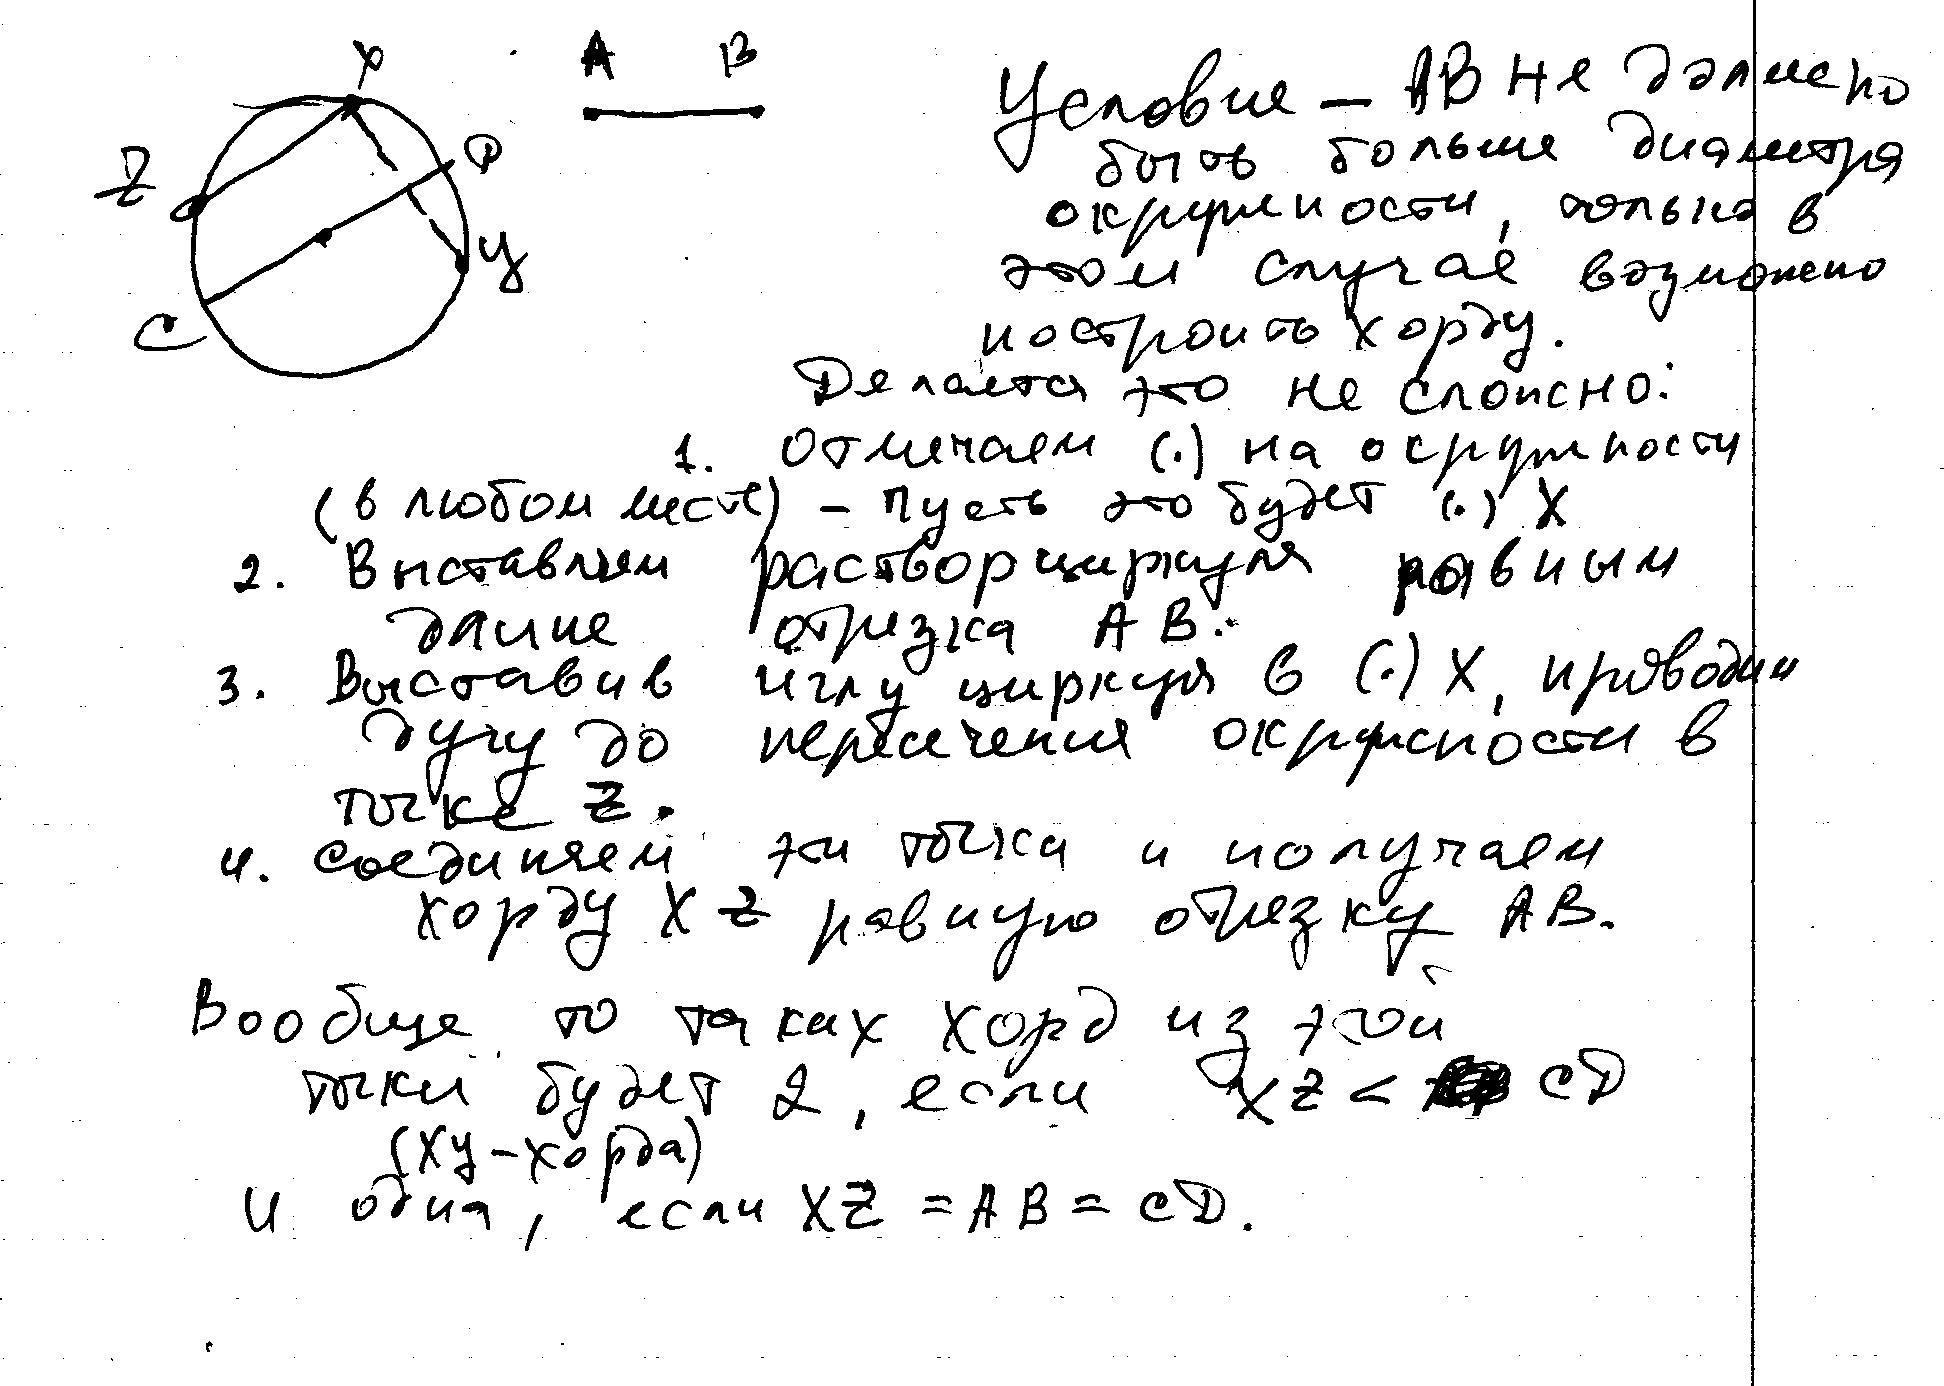 X
A B
Z
D
У
C
Условие – AB не должно
быть больше диаметра
окружности, только в
этом случае возможно
построить хорду.
Делается это не сложно:
1. Отмечаем (.) на окружности
(в любом месте) – пусть это будет (.) X
2. Выставляем раствор циркуля равным
длине отрезка AB.
3. Выставив иглу циркуля в (.) X, проводим
дугу до пересечения окружности в
точке Z.
4. Соединяем эти точки и получаем
хорду XZ равную отрезку AB.
Вообще то таких хорд из этой
точки будет 2, если XZ < CD
(XY – хорда)
И одна, если XZ = AB = CD.